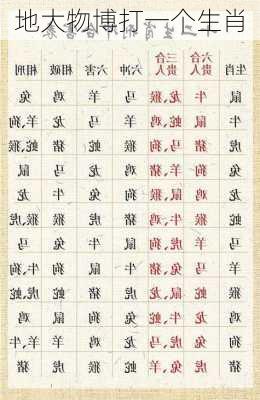 地大物博打一个生肖
生肖 六合贵人 三合贵人 六冲 六害 相破 相刑
鼠 牛 龙,猴 马 羊 鸡 兔
牛 鼠 蛇,鸡 羊 马 龙 羊,狗
虎 猪 马,狗 猴 蛇 猪 蛇,猴
兔 狗 羊,猪 鸡 龙 马 鼠
龙 鸡 鼠,猴 狗 兔 牛 龙
蛇 猴 牛,鸡 猪 虎 猴 猴,虎
马 羊 虎,狗 鼠 牛 兔 马
羊 马 兔,猪 牛 鼠 狗 牛,狗
猴 蛇 鼠,龙 虎 猪 蛇 虎,蛇
鸡 龙 牛,蛇 兔 狗 鼠 鸡
狗 兔 虎,马 龙 鸡 羊 牛,羊
猪 虎 兔,羊 蛇 猴 虎 猪